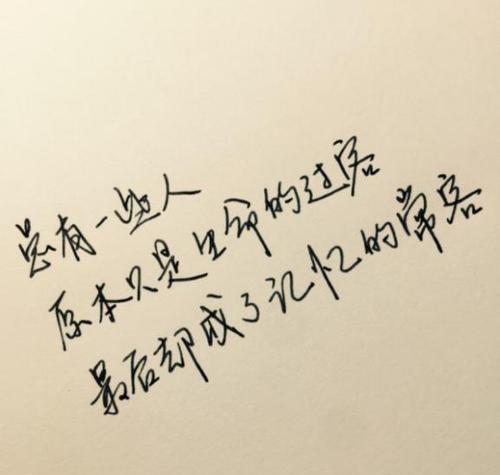 总有一些人
原本只是生命的过客
最后却成了记忆的常客